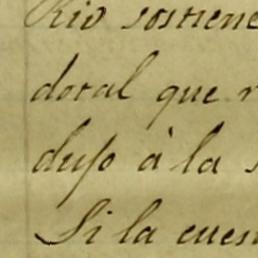 Rio sostiene
doral que
dujo à la
Si la cues